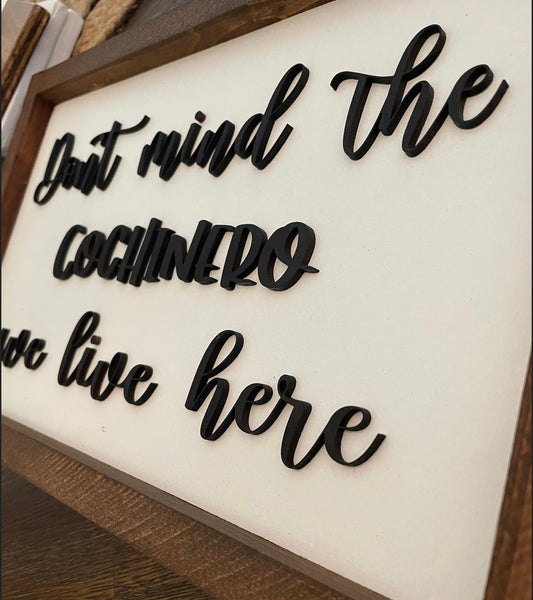 Don't mind the
COCHINERO
we live here